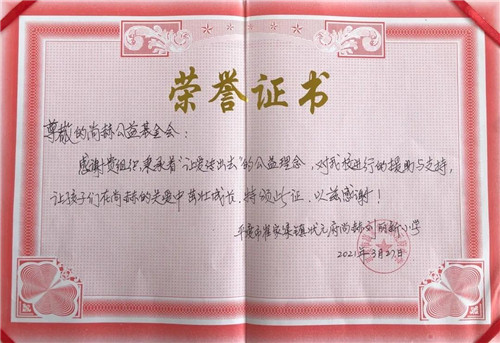 荣誉证书
尊敬的尚赫公益基金会：
感谢贵组织秉承着“让爱传出去”的公益理念，对我校进行的援助与支持，
让孩子们在尚赫的关爱中茁壮成长，特颁此证，以兹感谢！
平度市崔家集镇状元府尚赫刘丽新小学
2021年3月27日